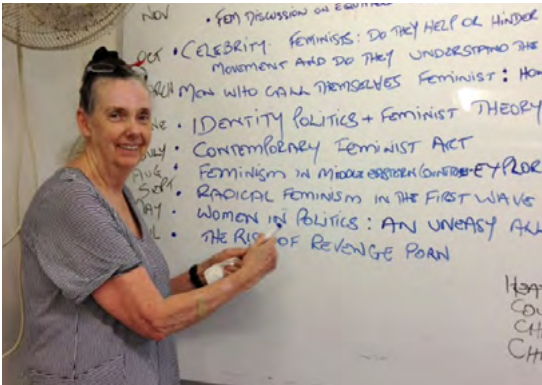 NOV • FEM DISCUSSION ON
OCT • CELEBRITY FEMINISTS: DO THEY HELP OR HINDER
MOVEMENT AND DO THEY UNDERSTAND THE
MEN WHO CALL THEMSELVES FEMINIST:
• IDENTITY POLITICS + FEMINIST THEORY
JULY • CONTEMPORARY FEMINIST ART
AUG • FEMINISM IN MIDDLE EASTERN
SEPT • RADICAL FEMINISM IN THE FIRST WAVE
• WOMEN IN POLITICS: AN UNEASY
• THE OF REVENGE PORN